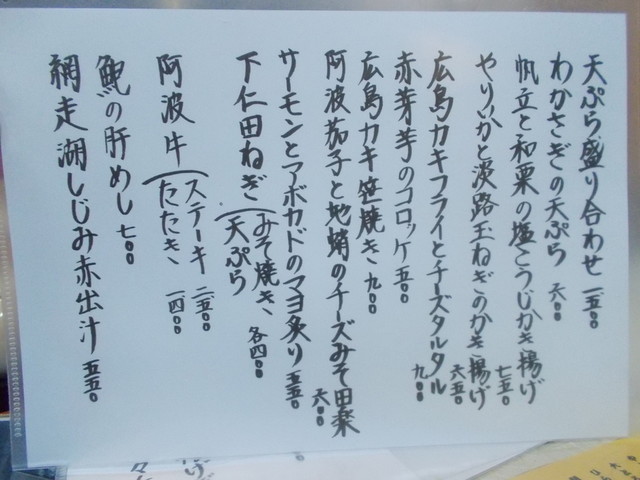 天ぷら盛り合わせ 一五〇〇
わかさぎの天ぷら 六〇〇
帆立と和栗の塩こうじかき揚げ 七五〇
やりいかと淡路玉ねぎのかき揚げ 六五〇
広島カキフライとチーズタルタル 九〇〇
赤芽芋のコロッケ 五〇〇
広島カキ笹焼き 九〇〇
阿波茄子と地蛸のチーズみそ田楽 六〇〇
サーモンとアボカドのマヨ炙り 五五〇
下仁田ねぎ（みそ焼き、天ぷら 各四〇〇
阿波牛（ステーキ 二五〇〇
たたき 一四〇〇
鮑の肝めし 七〇〇
網走湖しじみ赤出汁 五五〇